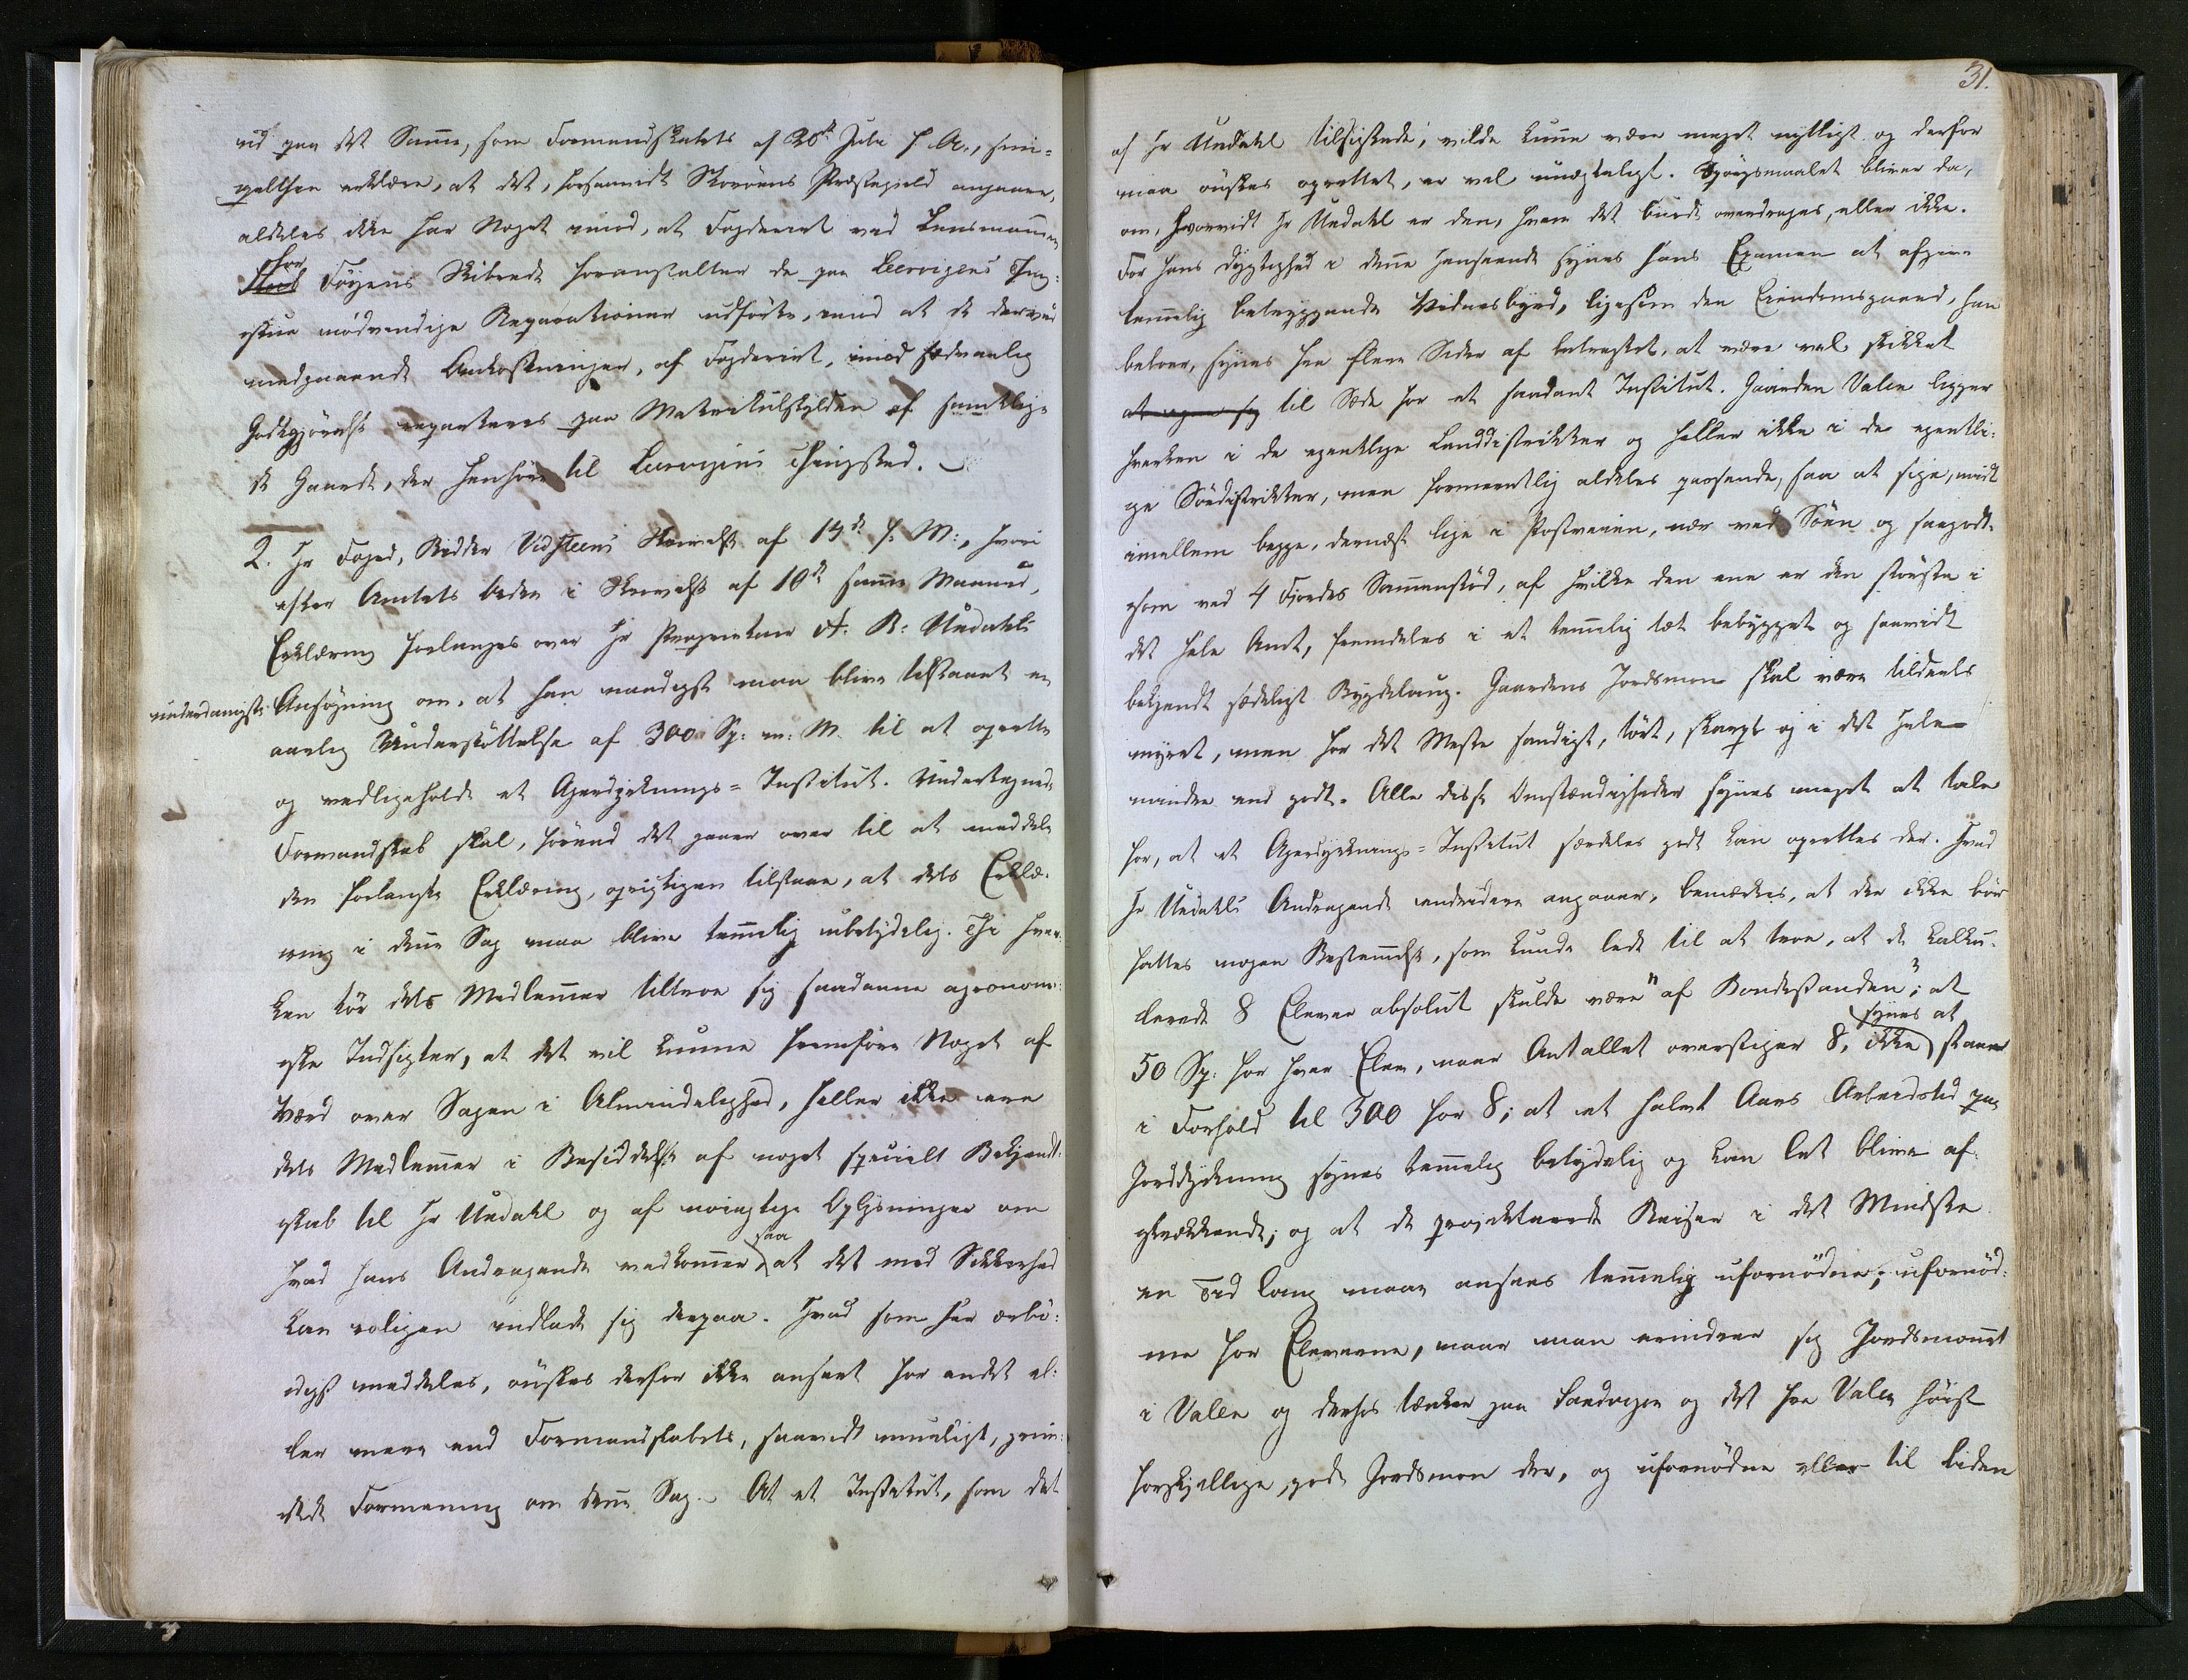 ud paa det Samme, som Formandskabets af 20de Juli f. A., hvor-
erklære, at det, forsaavidt Storöens Præstegield angaaer,
aldeles ikke har Noget imod, at Fogderiet ved Lensmannen
for
Föyens Skibrede foranstalter de paa Leervigens Thing-
stue nödvendige Reparationer udförte, med at de derved
medgaaende Omkostninger, af Fogderiet, imod sædvanlig
Godtgjörelse reparteres paa Matrikulskylden af samtlige
de Gaarde, der henhöre til Leervigens Thingsted.
2. Hr Foged, Ridder Vidsteens Skrivelse af 14de f. M., hvori
efter Amtets Orden i Skrivelse af 10de samme Maaned,
Erklæring forlanges over Hr Proprietair A. B. Undahls
underdanigste Ansögning om, at han naadigst maa blive tilstaaet en
aarlig Understöttelse af 300 Sp: til at oprette
og vedligeholde et Agerdyrknings-Institut. Undertegnede
Formandskab skal, förend det gaaer over til at meddele
den forlangte Erklæring, oprigtigen tilstaae, at dets Erklæ-
ring i denne Sag maa blive temmelig ubetydelig. Thi hver-
ken tör dets Medlemmer tiltroe sig saadanne agronomi-
ske Indsigter, at det vil kunne fremföre Noget af
Værd over Sagen i Almindelighed, heller ikke ere
dets Medlemmer i Besiddelse af noget specielt Bekjendt-
skab til Hr Undahl og af nöiagtige Oplysninger om
saa
hvad hans Andragende vedkommer, at det med Sikkerhed
kan roligen indlade sig derpaa. Hvad som her ærbö-
digst meddeles, önskes derfor ikke anseet for andet el-
ler mere end Formandskabets, saavidt mueligt, grun-
dede Formening om denne Sag. At et Institut, som det
31.
af Hr Undahl tilsigtede, vilde kunne være meget nyttigt og derfor
maa önskes oprettet, er vel unægteligt. Spörgsmaalet bliver da,
om, hvorvidt Hr Undahl er den, hvem det burde overdrages, eller ikke.
For hans Dygtighed i denne Henseende synes hans Examen at afgive
temmelig betryggende Vidnesbyrd, ligesom den Eiendomsgaard, han
beboer, synes fra flere Sider af betragtet, at være vel skikket
til Sæde for et saadant Institut. Gaarden Valen ligger
hverken i de egentlige Landdistrikter og heller ikke i de egentli-
ge Södistrikter, men formeentlig aldeles passende, saa at sige, midt
imellem begge, dernæst lige i Postveien, nær ved Söen og saagodt-
som ved 4 Fjordes Sammenstöd, af hvilke den ene er den störste i
det hele Amt, fremdeles i et temmelig tæt bebygget og saavidt
bekjendt sædeligt Bygdelaug. Gaardens Jordsmon skal være tildeels
myret, men for det Meste sandigt, tört, skarpt og i det Hele
mindre end godt. Alle disse Omstændigheder synes meget at tale
for, at et Agerdyrknings-Institut særdeles godt kan oprettes der. Hvad
Hr Undahls Andragende endvidere angaaer, bemærkes, at der ikke bör
fattes nogen Bestemmelse, som kunde lede til at troe, at de kalku-
lerede 8 Elever absolut skulde være "af Bondestanden"; at
synes at
50 Sp: for hver Elev, naar Antallet overstiger 8, ikke staae
i Forhold til 300 for 8; at et halvt Aars Arbeidstid paa
Jorddyrkning synes temmelig betydelig og kan let blive af-
skrækkende; og at de projekterede Reiser i det Mindste
en Tid lang maae ansees temmelig ufornödne; ufornöd-
ne for Eleverne, naar man erindrer sig Jordsmonnet
i Valen og derhos tænker paa Sandvigen og det fra Valen höist
forskjellige, gode Jordsmon der, og ufornödne eller til liden